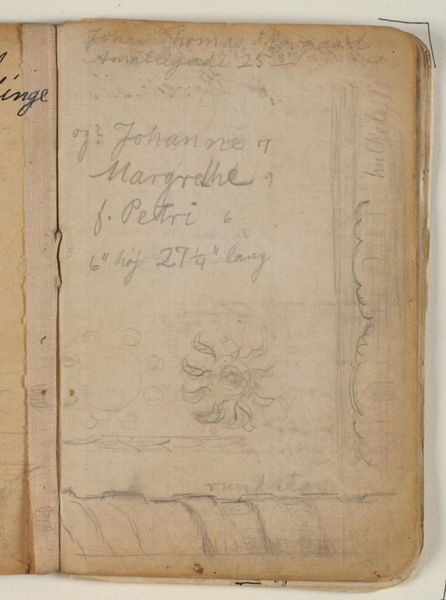 inge
Johan Thomas Skovgaard
Amaliegade 25
og Johanne 7
Margrethe 9
f. Petri 6
6" høj 27 1/4" lang
hulkele
rundstav